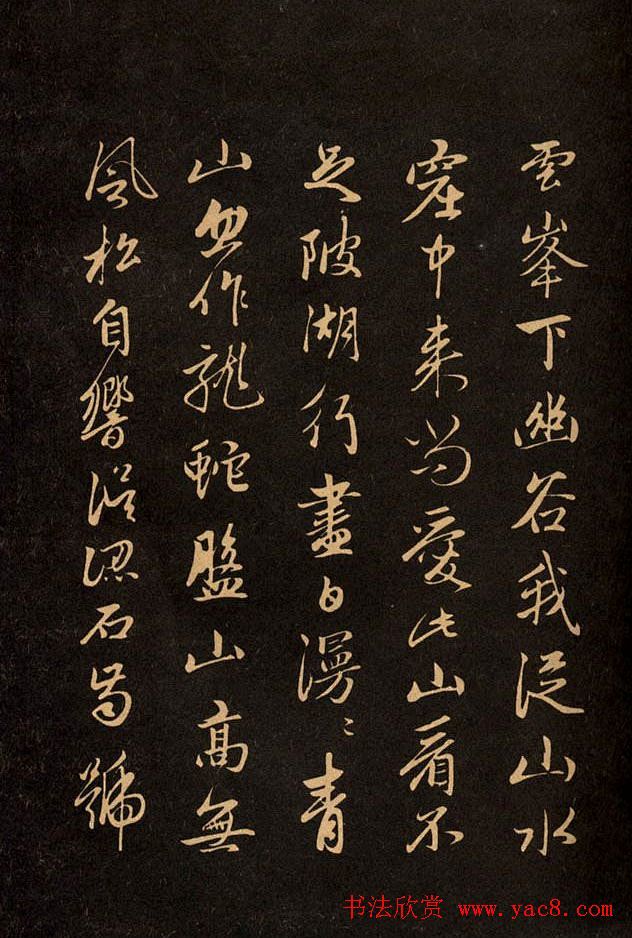 雲峯下幽谷我從山水
窟中来尚愛此山看不
足陂湖行盡白漫〻青
山忽作龍蛇盤山高無
風松自響誤認石齒號
书法欣赏 www.yac8.com